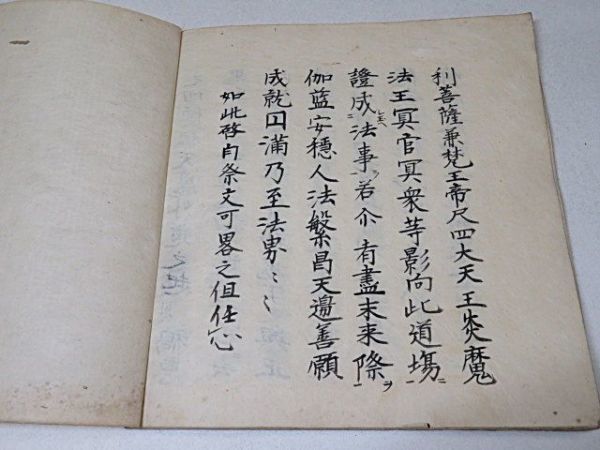 利菩薩兼梵王帝尺四大天王炎魔
法王冥官冥衆等影向此道場ニ
證成シ玉ヘ法事ヲ若尒者盡未来際ヲ
伽藍安穏人法繁昌天邊善願
成就円滿乃至法界〻〻
如此啓白祭文可畧之但任心